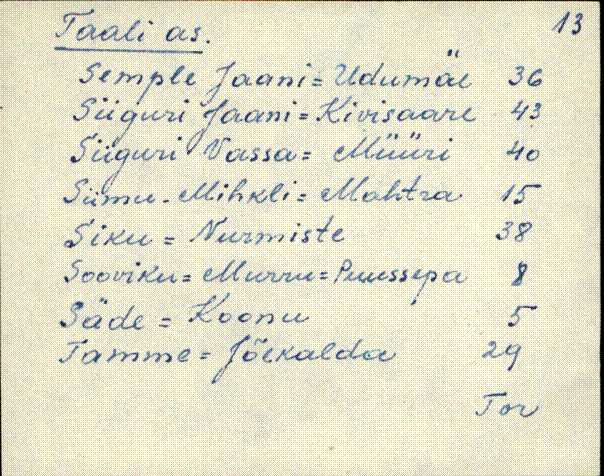 Taali as. 13
Semple Jaani = Udumäe 36
Siiguri Jaani = Kivisaare 43
Siiguri Vassa = Müüri 40
Siimu-Mihkli = Mahtra 15
Siku = Nurmiste 38
Sooviku = Murru = Puussepa 8
Säde = Koonu 5
Tamme = Jõekalda 29
Tor